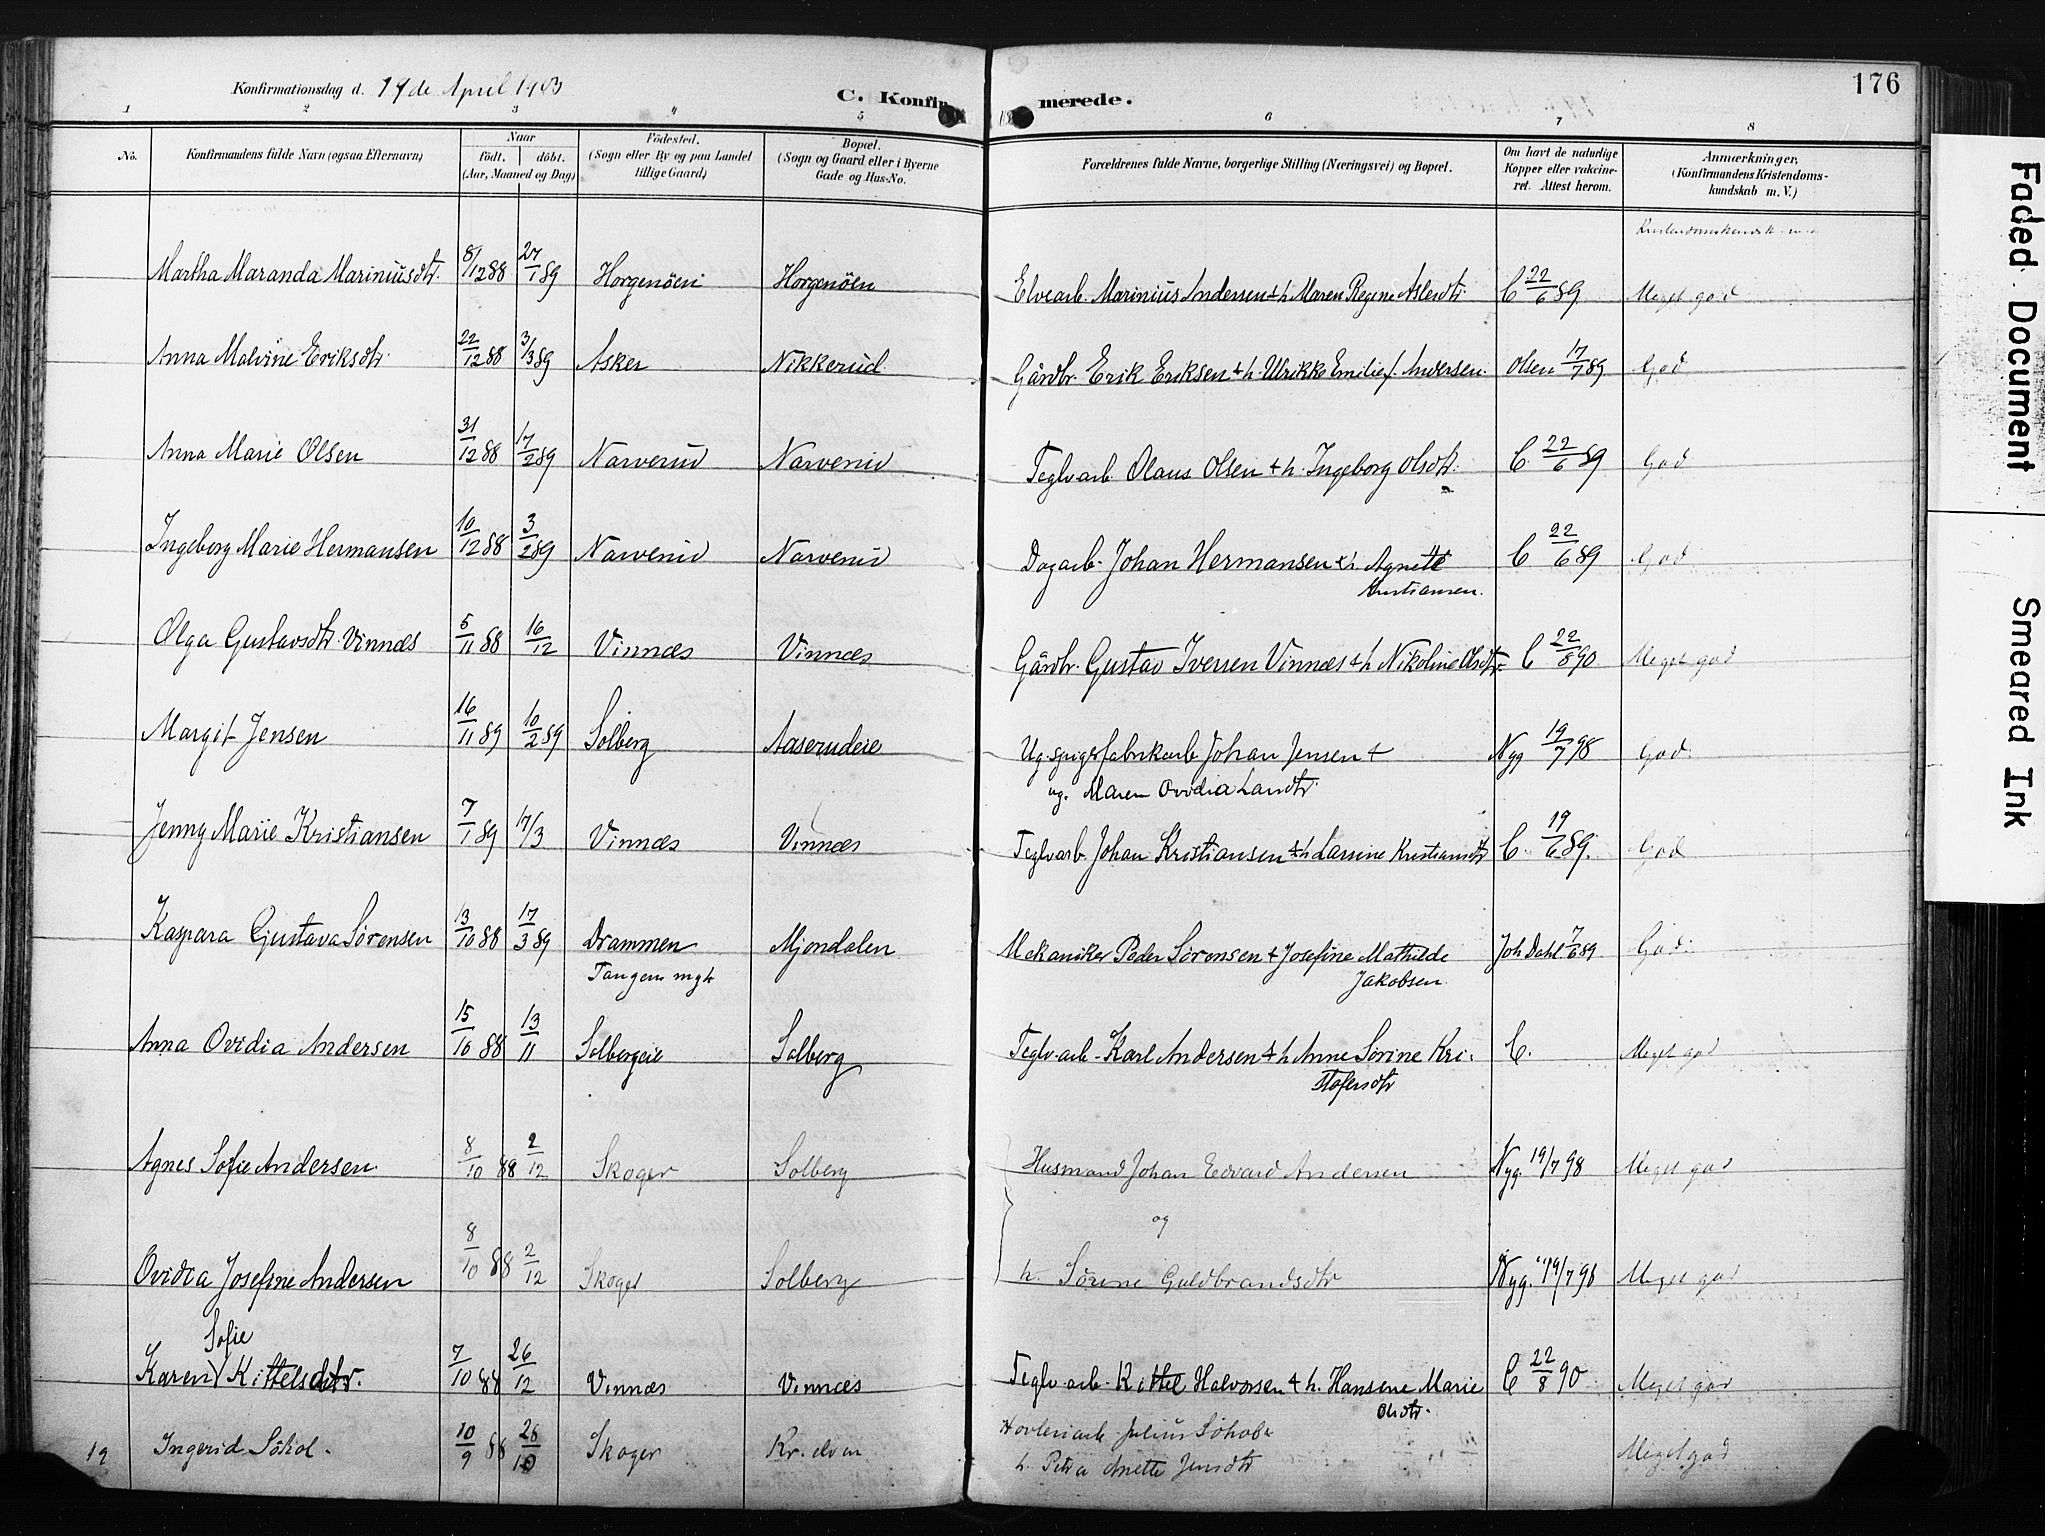 Konfirmationsdag d. 19 de April 1903
C. Konfirmerede.
176
1 2 3 " 5 6 7 8
No.
Konfirmandens fulde Navn (ogsaa Efternavn)
Naar
födt. döbt.
(Aar, Maaned og Dag)
Födested.
(Sogn eller By og paa Landet
tillige Gaard)
Bopæl.
(Sogn og Gaard eller i Byerne
Gade og Hus-No.
Forældrenes fulde Navne, borgerlige Stilling (Næringsvei) og Bopæl.
Om havt de naturlige
Kopper eller vakcine-
ret. Attest herom.
Anmærkninger,
(Konfirmandens Kristendoms-
kundskab m. V.)
Martha Maranda Mariniusdtr. 8/12 88 27/1 89 Horgenöen Horgenöen Elvearb. Marinius Andersen & h. Maren Regine Aslesdtr. C 22/6 89 Meget god
Anna Malvine Eriksdtr. 22/12 88 3/3 89 Asker Nikkerud Gårdbr. Erik Eriksen & h. Ulrikke Emilie f. Andersen. Olsen 17/7 89 God
Anna Marie Olsen 31/12 88 17/2 89 Narverud Narverud Teglv.arb. Olaus Olsen & h. Ingeborg Olsdtr. C. 22/6 89 God
Ingeborg Marie Hermansen 10/12 88 3/2 89 Narverud Narverud Dagarb. Johan Hermansen & h. Agnette
Kristiansen. C 22/6 89 God
Olga Gustavsdtr. Vinnæs 5/11 88 16/12 Vinnæs Vinnæs Gårdbr. Gustav Iversen Vinnæs & h. Nikoline Olsdtr. C 22/8 90 Meget god
Margit Jensen 16/11 89 10/2 89 Solberg Aaserudeie Ug. spigerfabrikarb. Johan Jensen &
ug. Maren Ovidia Larsdtr. Nyg 19/7 98 God.
Jenny Marie Kristiansen 7/1 89 17/3 Vinnæs Vinnæs Teglv.arb. Johan Kristiansen & h. Larsine Kristiansdtr C. 19/6 89. God
Kaspara Gustava Sörensen 13/10 88 17/3 89 Drammen
Tangens mgh Mjondalen Mekaniker Peder Sörensen & Josefine Mathilde
Jakobsen. Joh Dahl 7/6 89 God.
Anna Ovidia Andersen 15/10 88 13/11 Solbergeie Solberg Teglv.arb. Karl Andersen & h. Anne Sörine Kri-
stofersdtr C. Meget god
Agnes Sofie Andersen 8/10 88 2/12 Skoger Solberg Husmand Johan Edvard Andersen Nyg. 19/7 98 Meget god
og
Ovidia Josefine Andersen 8/10 88 2/12 Skoger Solberg h. Sörine Guldbrandsdtr Nyg. 19/7 98 Meget god
Sofie
Karen Kittelsdtr. 7/10 88 26/12 Vinnæs Vinnæs Teglv.arb. Kittel Halvorsen & h. Hansene Marie
Olsdtr. C 22/8 90 Meget god
Ingerid 10/9 88 26/10 Skoger Kr. elven Julius
h. Petra Anette Jensdtr Meget god
Faded Document
Smeared Ink